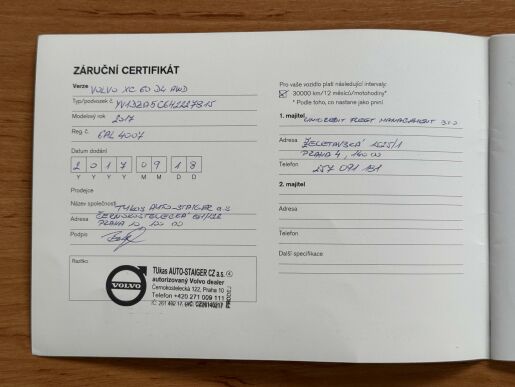 ZÁRUČNÍ CERTIFIKÁT
Verze VOLVO XC 60 D4 AWD
Typ/podvozek č.
Modelový rok 2017
Reg. č. 6AL 4007
Datum dodání
2 0 1 7 0 9 1 8
Y Y Y Y M M D D
Prodejce
Název společnosti TUKAS AUTO-STAIGER
Adresa ČERNOKOSTELECKÁ
PRAHA 10 100 00
Podpis
Razítko
VOLVO
TUkas AUTO-STAIGER CZ a.s. 4
autorizovaný Volvo dealer
Černokostelecká 122, Praha 10
Telefon +420 271 009 111
PRODEJ
Pro vaše vozidlo platí následující intervaly:
30000 km/12 měsíců/motohodiny*
* Podle toho, co nastane jako první.
1. majitel UNICREDIT FLEET MANAGEMENT
Adresa ŽELETAVSKÁ 1525/1
PRAHA 4, 140 00
Telefon 257 091 191
2. majitel
Adresa
Telefon
Další specifikace